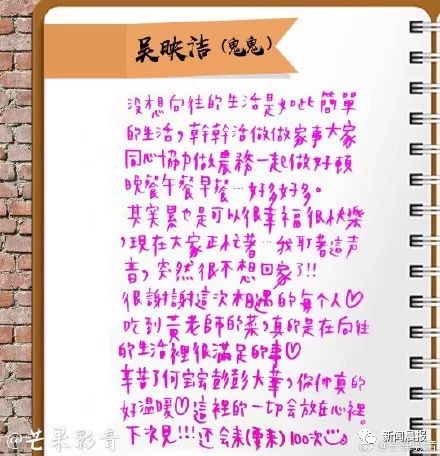 吴映洁(鬼鬼)
没想向往的生活是如此簡單
的生活,幹幹活做做家事大家
同心協力做農務一起做好頓
晚餐午餐早餐…好多好多。
其实累也是可以很幸福很快樂
,現在大家正忙著…我聽著這声
音,突然很不想回家了!!
很謝謝這次相遇的每个人♡
吃到黃老師的菜,真的是在向往
的生活裡很滿足的事♡
辛苦了何宝宝彭彭大華,你们真的
好溫暖♡這裡的一切会放在心裡。
下次見!!!还会来(要来)100次
@芒果影音
新闻晨报